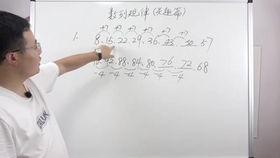 数列规律(关超篇)
+7 +7 +7 +7
1. 8, 15, 22, 29, 36, 43, 50, 57
92, 88, 84, 80, 76, 72, 68
-4 -4 -4 -4 -4 -4